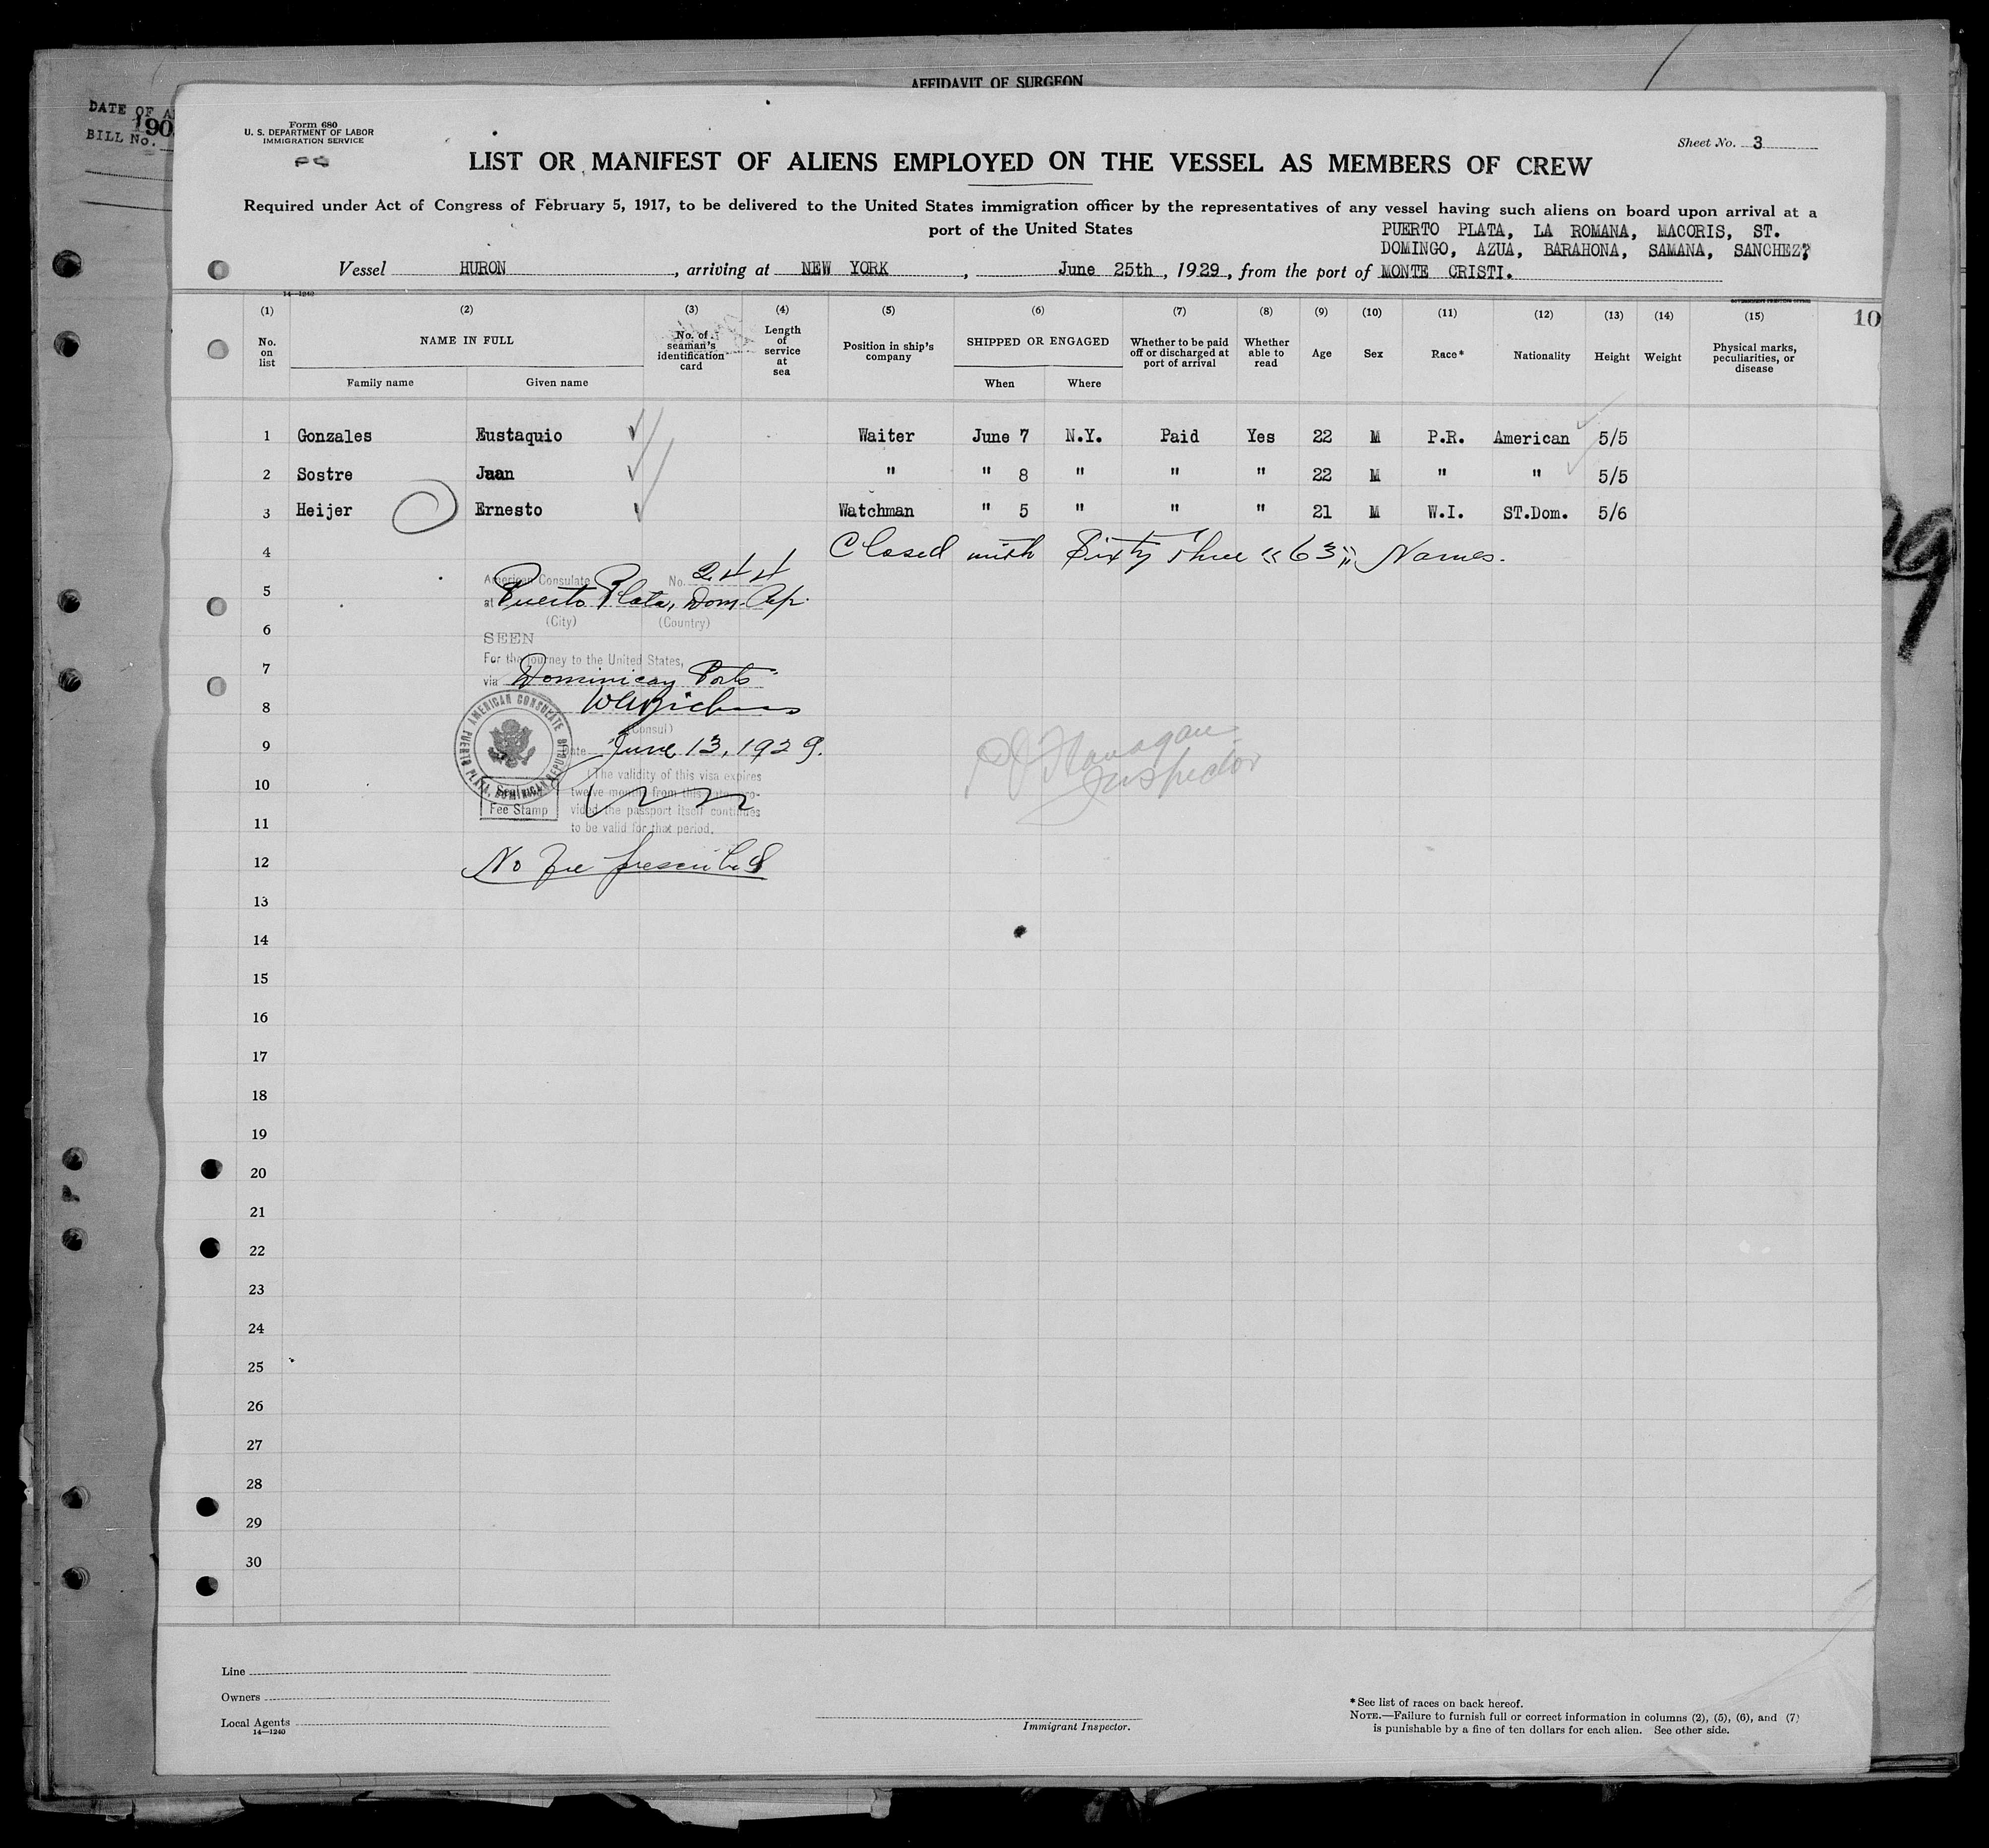 AFFIDAVIT OF SURGEON
DATE OF A
190
BILL No.
Form 680
U. S. DEPARTMENT OF LABOR
IMMIGRATION SERVICE
Sheet No. 3
LIST OR MANIFEST OF ALIENS EMPLOYED ON THE VESSEL AS MEMBERS OF CREW
Required under Act of Congress of February 5, 1917, to be delivered to the United States immigration officer by the representatives of any vessel having such aliens on board upon arrival at a
port of the United States
PUERTO PLATA, LA ROMANA, MACORIS, ST.
DOMINGO, AZUA, BARAHONA, SAMANA, SANCHEZ,
Vessel HURON, arriving at NEW YORK, June 25th, 1929, from the port of MONTE CRISTI.
14—1240
GOVERNMENT PRINTING OFFICE
10
(1) (2) (3) (4) (5) (6) (7) (8) (9) (10) (11) (12) (13) (14) (15)
No. on list
NAME IN FULL
Family name Given name
No. of seaman's identification card
Length of service at sea
Position in ship's company
SHIPPED OR ENGAGED
When Where
Whether to be paid off or discharged at port of arrival
Whether able to read
Age Sex Race* Nationality Height Weight
Physical marks, peculiarities, or disease
1 Gonzales Eustaquio Waiter June 7 N.Y. Paid Yes 22 M P.R. American 5/5
2 Sostre Juan " " 8 " " " 22 M " " 5/5
3 Heijer Ernesto Watchman " 5 " " " 21 M W.I. ST.Dom. 5/6
4 Closed with Sixty Three "63" Names.
American Consulate No. 244
5 at Puerto Plata, Dom. Rep.
(City) (Country)
6
SEEN
For the journey to the United States,
7 via Dominican Ports
8
(Consul)
9 Date June 13, 1929.
AMERICAN CONSULATE
PUERTO PLATA, DOMINICAN REPUBLIC
PJ Flanagan
Inspector
(The validity of this visa expires
10 twelve months from this date pro-
vided the passport itself continues
to be valid for that period.
Seal
Fee Stamp
11
12 No fee prescribed
13
14
15
16
17
18
19
20
21
22
23
24
25
26
27
28
29
30
Line
Owners
Local Agents
14—1240
Immigrant Inspector.
*See list of races on back hereof.
NOTE.—Failure to furnish full or correct information in columns (2), (5), (6), and (7)
is punishable by a fine of ten dollars for each alien. See other side.